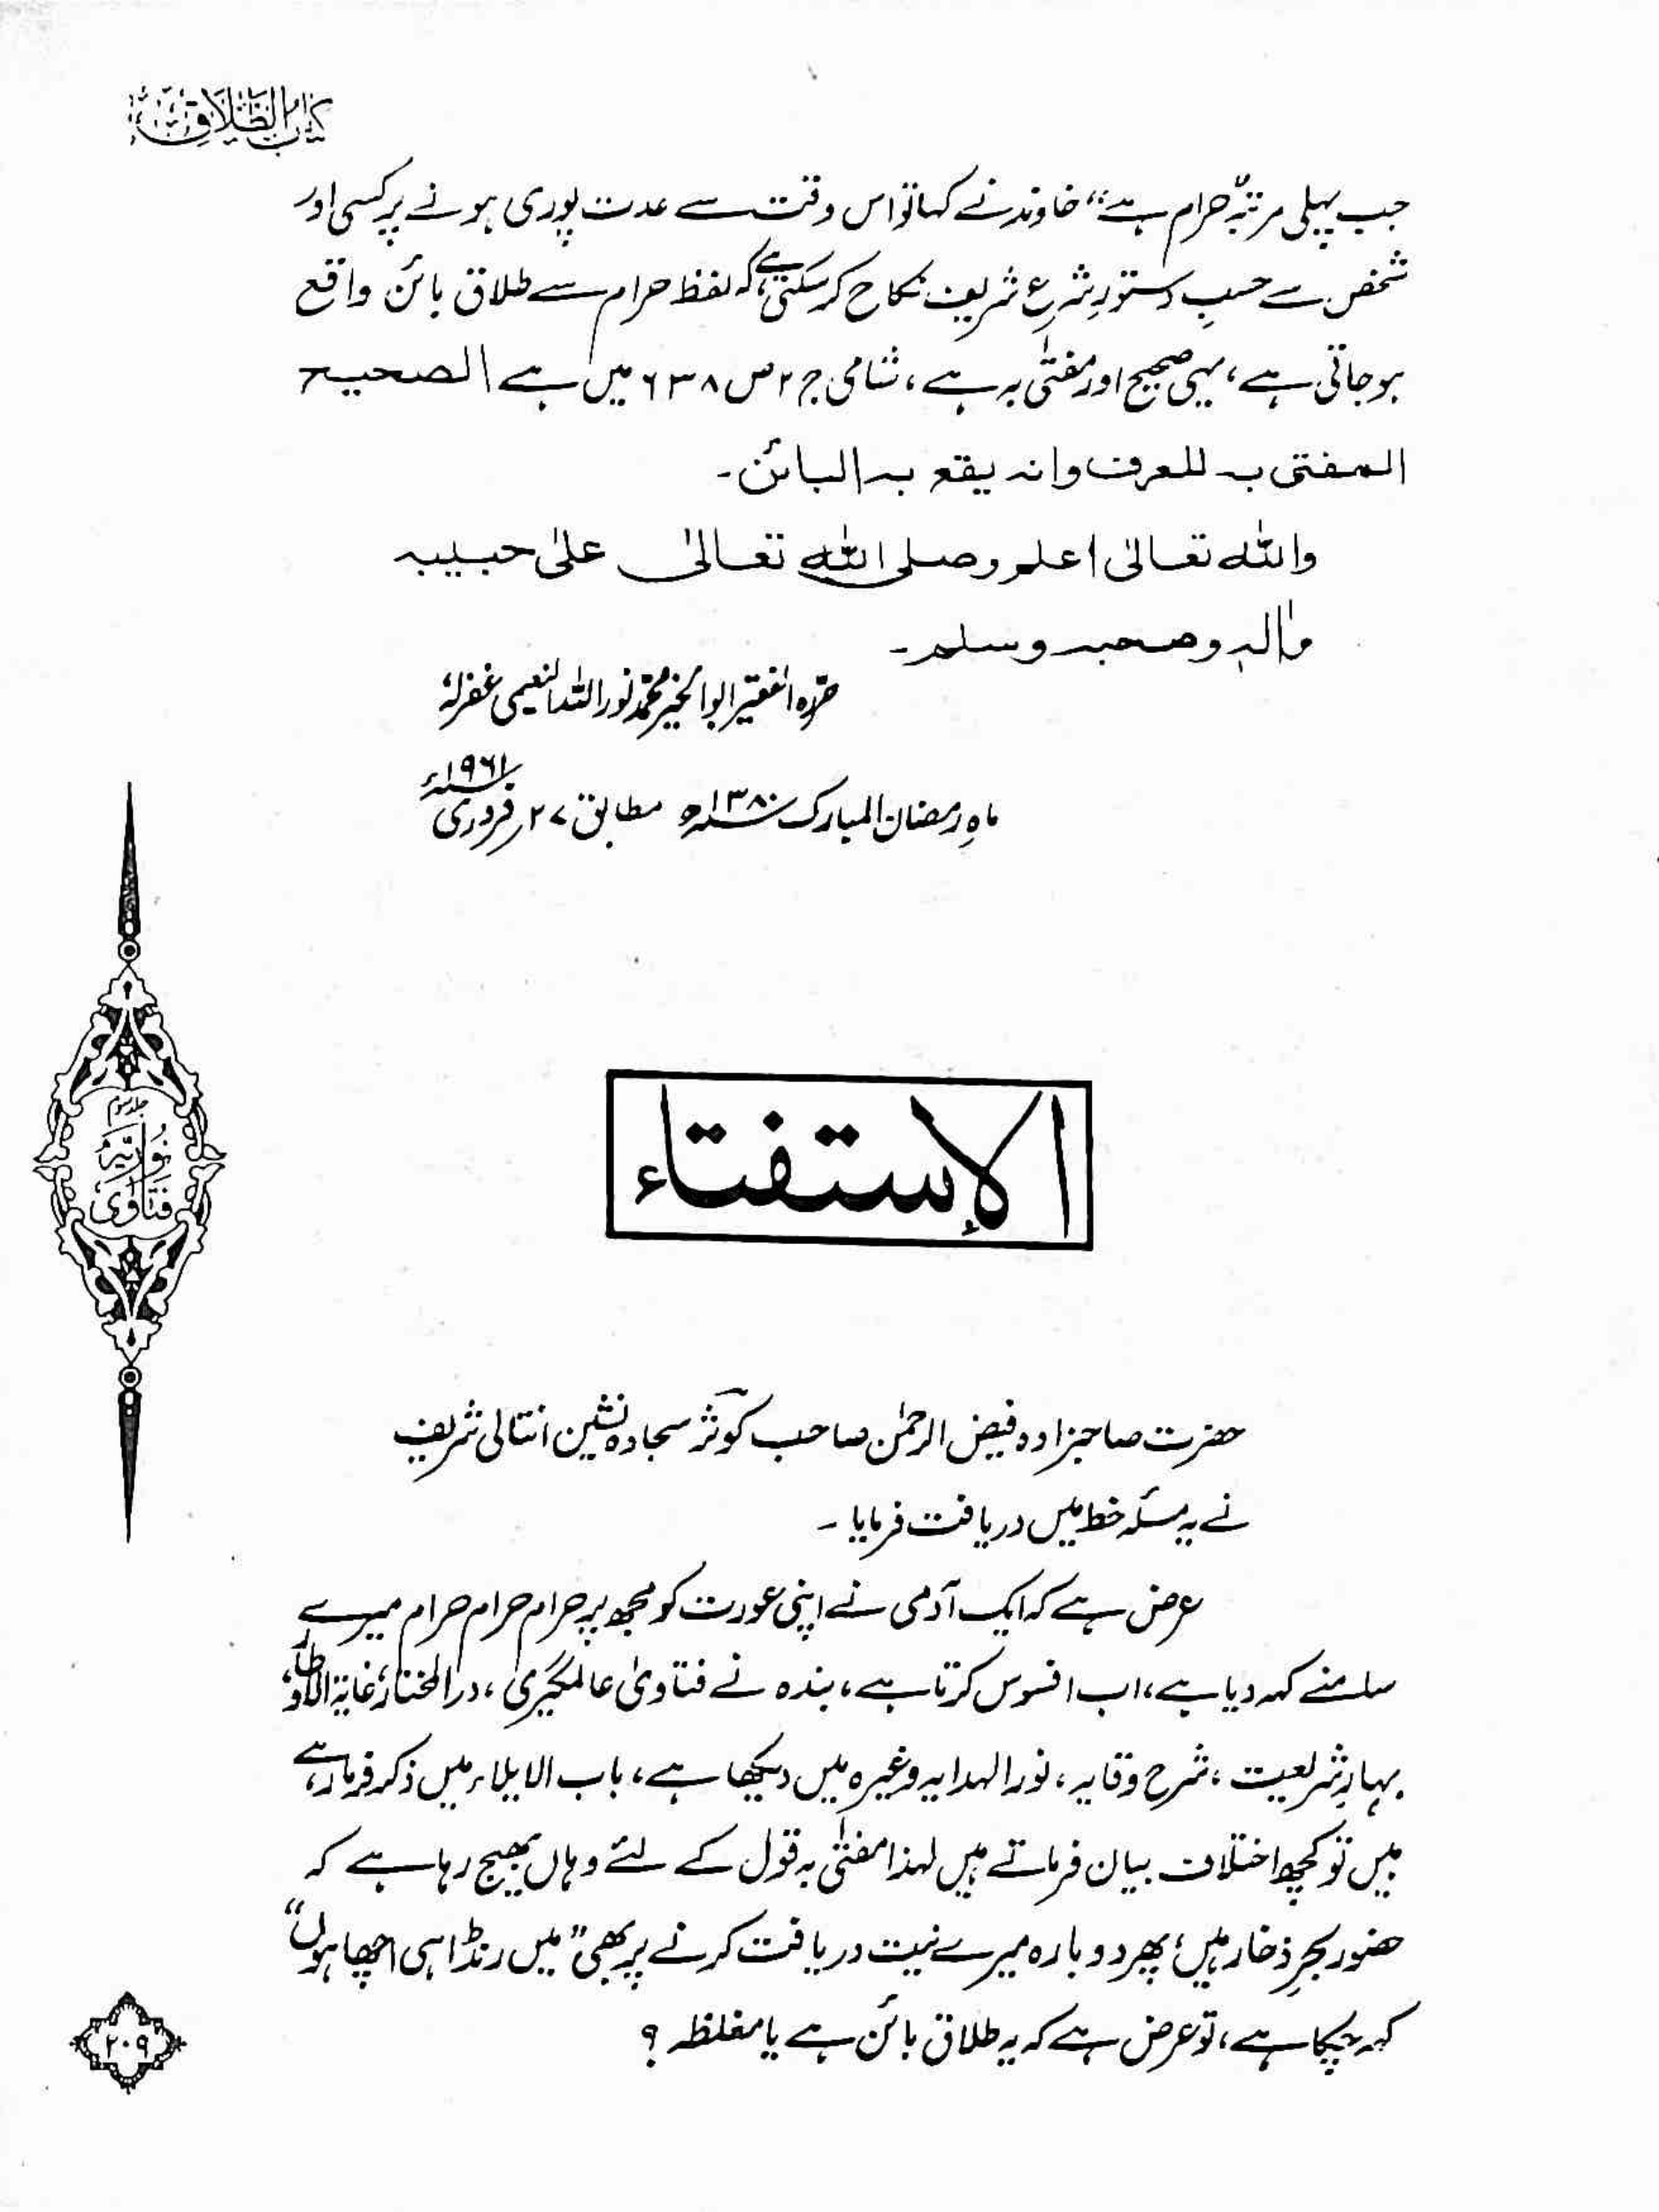 کتاب الطلاق
جب پہلی مرتبہ "حرام ہے" خاوند نے کہا تو اس وقت سے عدت پوری ہونے پر کسی اور
شخص سے حسبِ دستورِ شرع شریف نکاح کر سکتی ہے، کہ لفظ حرام سے طلاق بائن واقع
ہو جاتی ہے، یہی صحیح اور مفتیٰ بہ ہے، شامی ج ۲ ص ۶۳۸ میں ہے الصحیح
المفتی بہ للعرف وانہ یقع بہ البائن۔
واللہ تعالیٰ اعلم وصلی اللہ تعالیٰ علیٰ حبیبہ
واٰلہٖ وصحبہ وسلم۔
حررہ الفقیر ابوالخیر محمد نور اللہ النعیمی غفرلہٗ
ماہِ رمضان المبارک ۱۳۸۰ھ مطابق ۲۷ فروری ۱۹۶۱ء
الإستفتاء
جلد سوم
نوریہ
فتاویٰ
حضرت صاحبزادہ فیض الرحمٰن صاحب کوثر سجادہ نشین انتالی شریف
نے یہ مسئلہ خط میں دریافت فرمایا۔
عرض ہے کہ ایک آدمی نے اپنی عورت کو مجھ پر حرام حرام حرام میرے
سامنے کہہ دیا ہے، اب افسوس کرتا ہے، بندہ نے فتاویٰ عالمگیری، درالمختار، غایۃ الاوطار،
بہارِ شریعت، شرح وقایہ، نور الہدایہ وغیرہ میں دیکھا ہے، باب الایلاء میں ذکر فرما رہے
ہیں تو کچھ اختلاف بیان فرماتے ہیں لہذا مفتیٰ بہ قول کے لئے وہاں بھیج رہا ہے کہ
حضور بحرِ ذخار ہیں، پھر دوبارہ میرے نیت دریافت کرنے پر بھی "میں رنڈا ہی اچھا ہوں"
کہہ چکا ہے، تو عرض ہے کہ یہ طلاق بائن ہے یا مغلظہ ؟
۲۰۹